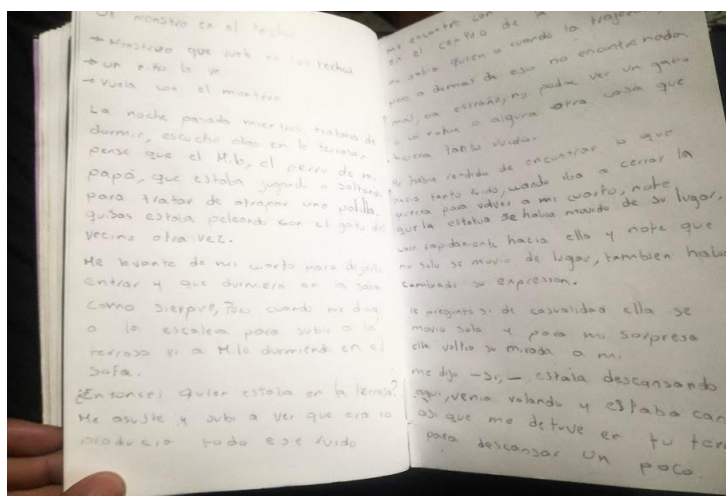 Un monstro en el techo
→ Monstruo que vuela en los techos
→ un niño lo ve
→ vuela con el monstruo
La noche pasada mientras trataba de
dormir, escuche algo en la terraza,
pense que el Milo, el perro de mi
papá, que estaba jugando o saltando
para tratar de atrapar una polilla.
quisas estaba peleando con el gato del
vecino otra vez.
Me levante de mi cuarto para dejarlo
entrar y que durmiera en la sala
como siempre, Pero cuando me
a la escalera para subir a la
terraza vi a Milo durmiendo en el
sofa.
¿Entonces quien estaba en la terraza?
Me asuste y subi a ver que era lo
producia todo ese ruido
me encontre con
en el centro de
no sabia quien o cuando la
pero a demas de eso no encontre nada
mas, era extraño, no pude ver un gato
o un o alguna otra cosa que
hiciera tanto ruido.
Me habia rendido de encontrar lo que
hacia tanto ruido, cuando iba a cerrar la
puerta para volver a mi cuarto, note
que la estatua se habia movido de su lugar,
corri rapidamente hacia ella y note que
no solo se movio de lugar, tambien habia
cambiado su expresion.
le pregunte si de casualidad ella se
movio sola y para mi sorpresa
ella voltio su mirada a mi.
me dijo -si,- estaba descansando
aqui, venia volando y estaba can
asi que me detuve en tu terr
para descansar un poco.